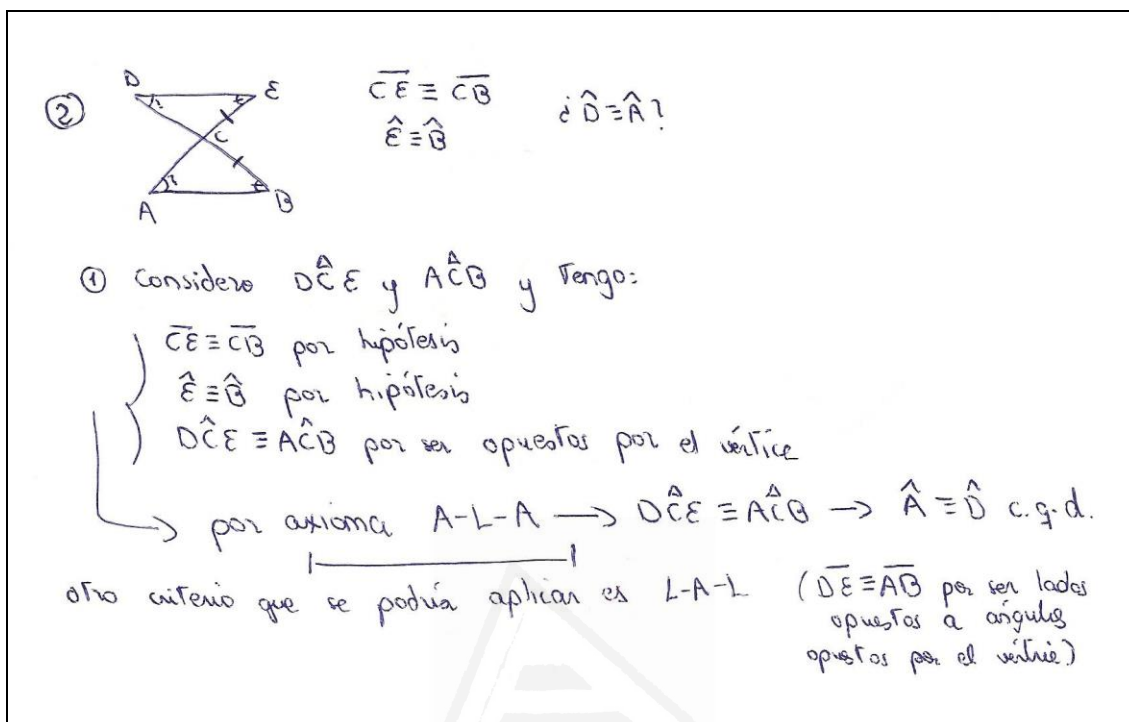 ② D E C A B
CE ≡ CB
Ê ≡ B̂
¿ D̂ ≡ Â ?
① Considero DĈE y AĈB y Tengo:
CE ≡ CB por hipótesis
Ê ≡ B̂ por hipótesis
DĈE ≡ AĈB por ser opuestos por el vértice
por axioma A-L-A → DĈE ≡ AĈB → Â ≡ D̂ c.q.d.
otro criterio que se podría aplicar es L-A-L (DE ≡ AB por ser lados
opuestos a ángulos
opuestos por el vértice)